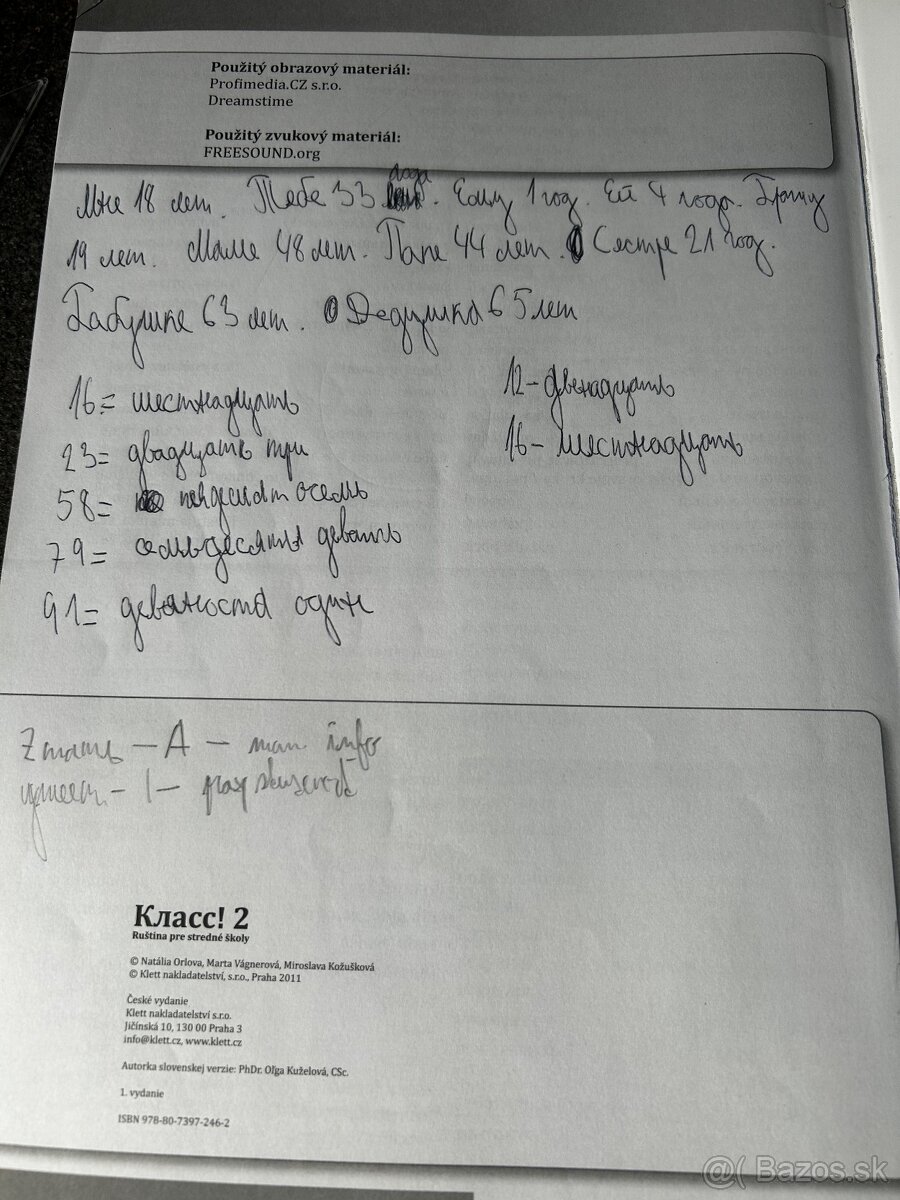 Použitý obrazový materiál:
Profimedia.CZ s.r.o.
Dreamstime
Použitý zvukový materiál:
FREESOUND.org
Мне 18 лет. Тебе 33 года. Ему 1 год. Ей 4 года. Брату
19 лет. Маме 48 лет. Папе 44 лет. Сестре 21 год.
Бабушке 63 лет. Дедушка 65 лет
16= шестнадцать
12- двенадцать
23= двадцать три
16- шестнадцать
58= осемь
79= семьдесяты девать
91= девяноста один
- А - mam info
- I -
Класс! 2
Ruština pre stredné školy
© Natália Orlova, Marta Vágnerová, Miroslava Kožušková
© Klett nakladatelství, s.r.o., Praha 2011
České vydanie
Klett nakladatelství s.r.o.
Jičínská 10, 130 00 Praha 3
info@klett.cz, www.klett.cz
Autorka slovenskej verzie: PhDr. Oľga Kuželová, CSc.
1. vydanie
ISBN 978-80-7397-246-2
@( Bazos.sk